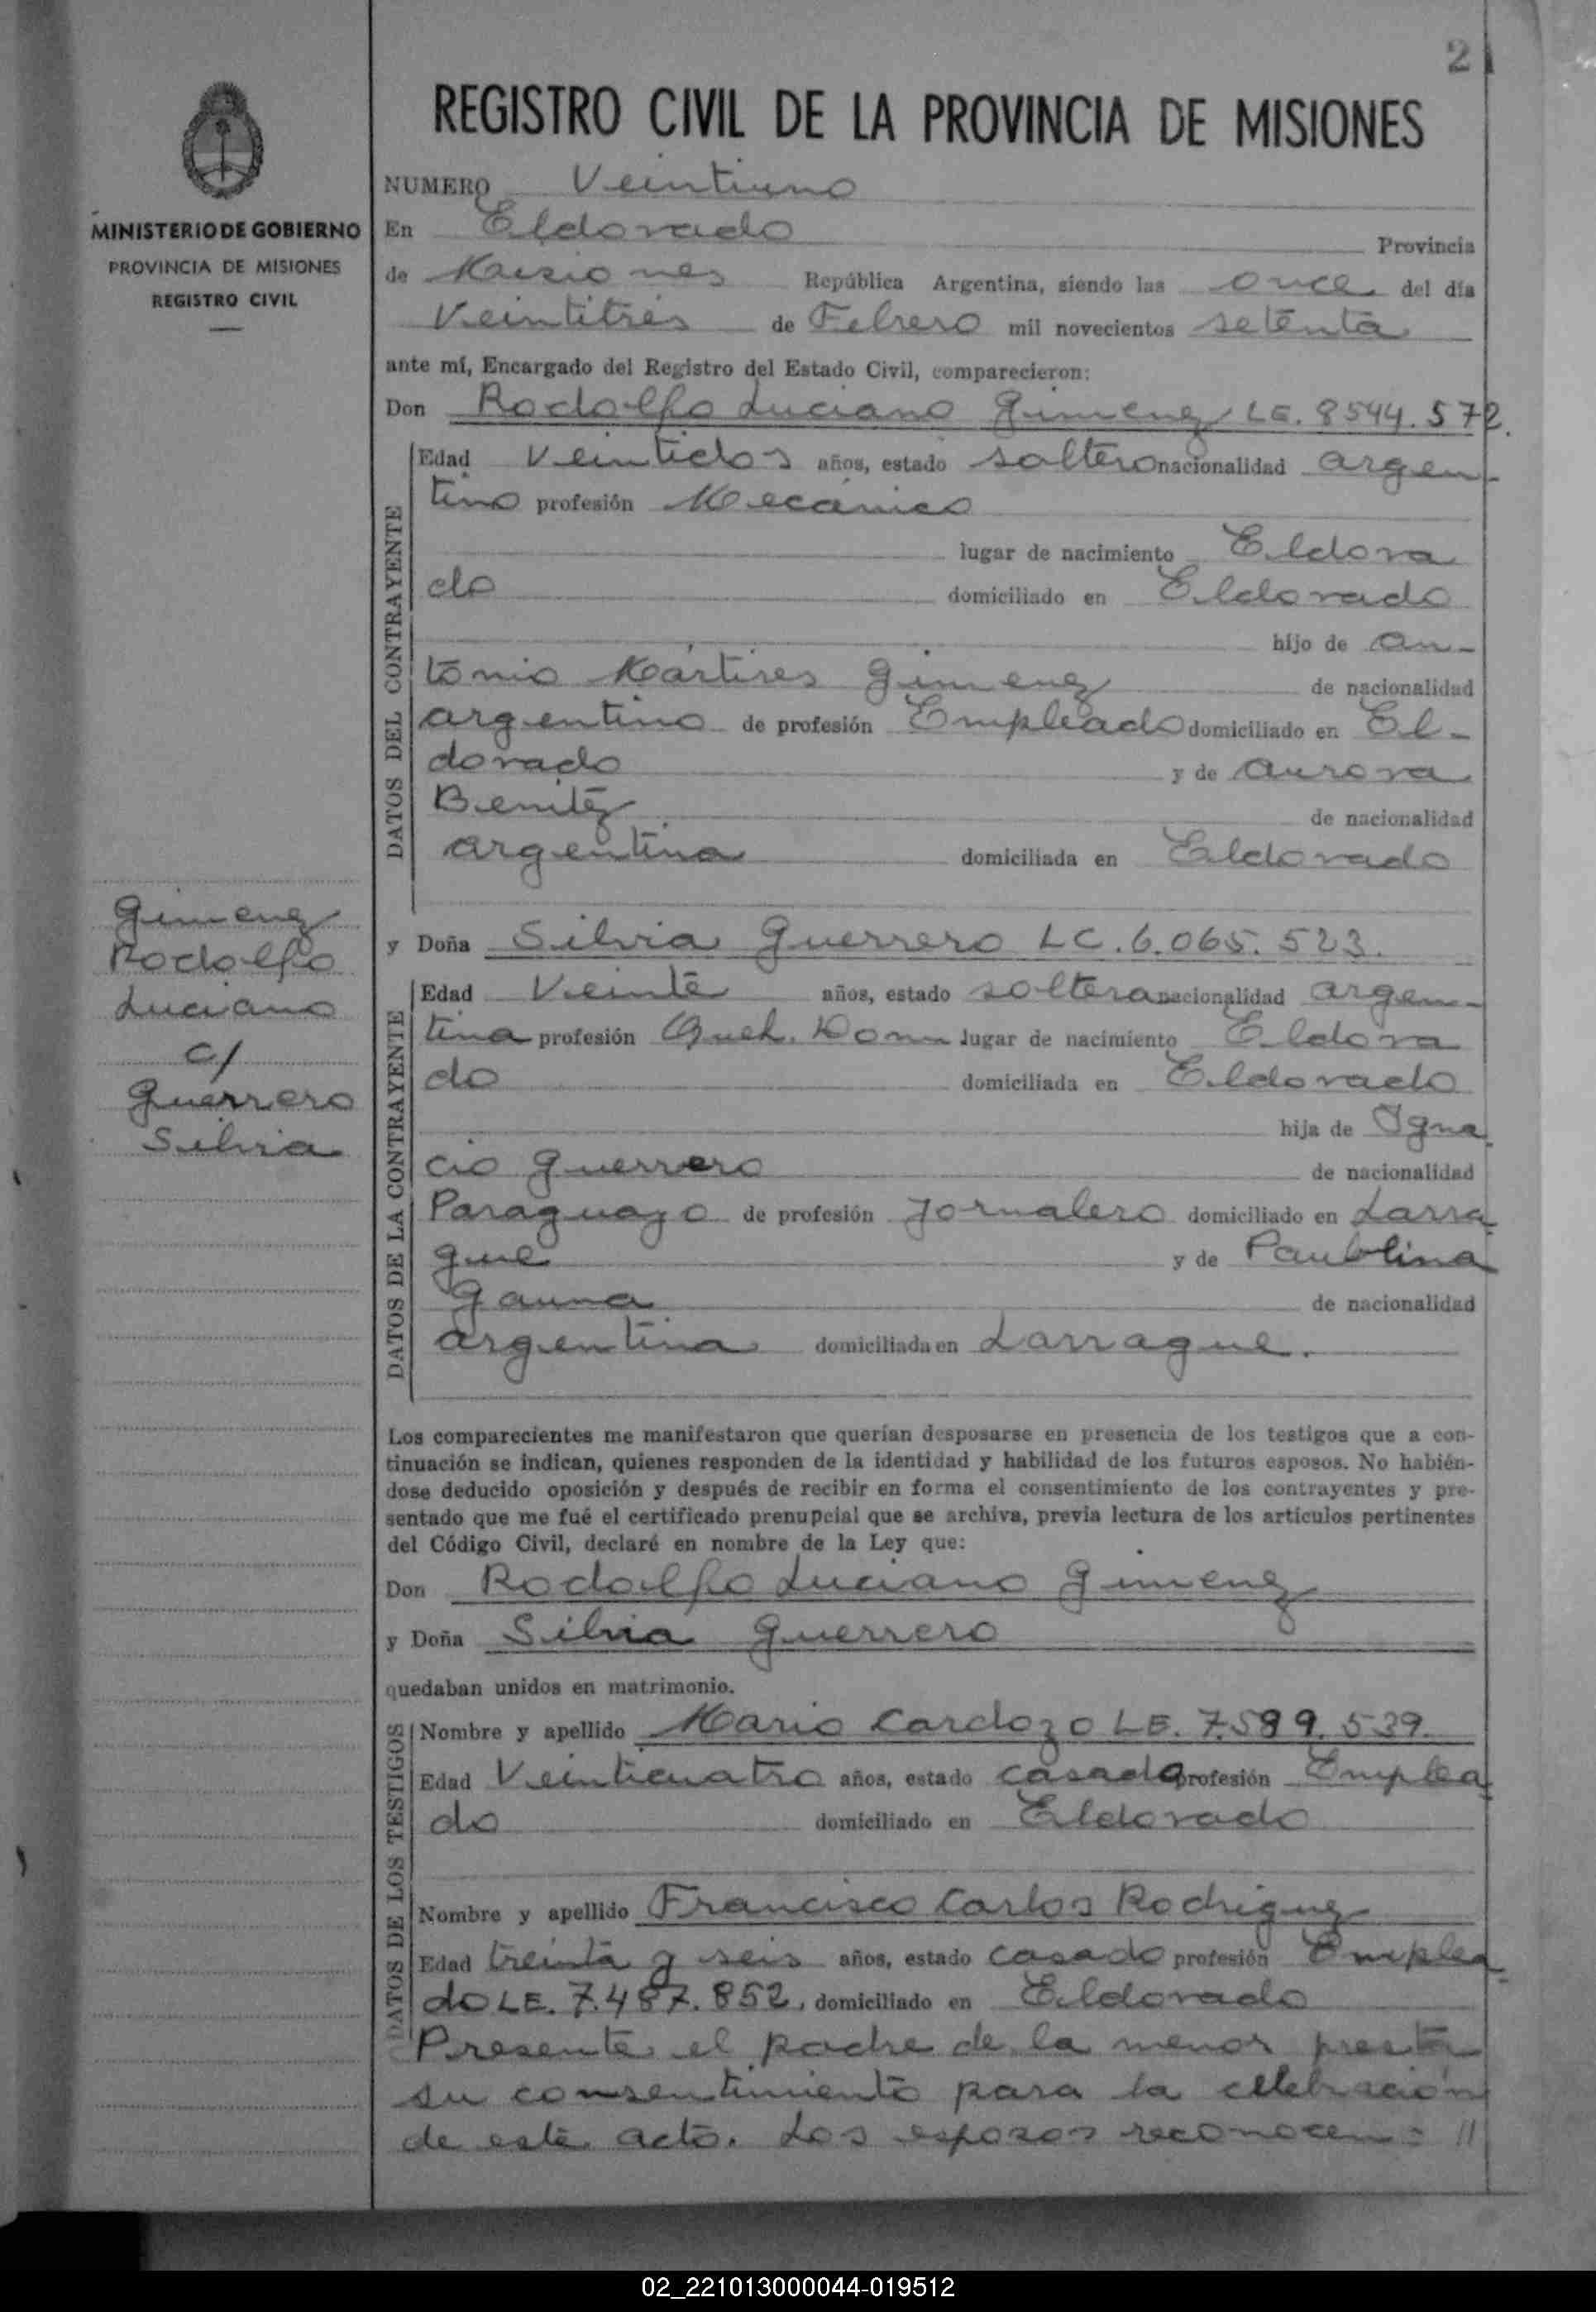 21
MINISTERIO DE GOBIERNO
PROVINCIA DE MISIONES
REGISTRO CIVIL
Gimenez
Rodolfo
Luciano
c/
Guerrero
Silvia
REGISTRO CIVIL DE LA PROVINCIA DE MISIONES
NUMERO Veintiuno
En Eldorado Provincia
de Misiones República Argentina, siendo las once del día
Veintitrés de Febrero mil novecientos setenta
ante mí, Encargado del Registro del Estado Civil, comparecieron:
Don Rodolfo Luciano Gimenez LE. 8544.572.
DATOS DEL CONTRAYENTE
Edad Veintidos años, estado soltero nacionalidad argen-
tino profesión Mecánico
lugar de nacimiento Eldora
do domiciliado en Eldorado
hijo de An-
tonio Mártires Gimenez de nacionalidad
argentino de profesión Empleado domiciliado en El-
dorado y de Aurora
Benitez de nacionalidad
argentina domiciliada en Eldorado
y Doña Silvia Guerrero LC. 6.065.523.
DATOS DE LA CONTRAYENTE
Edad Veinte años, estado soltera nacionalidad argen-
tina profesión Queh. Dom lugar de nacimiento Eldora
do domiciliada en Eldorado
hija de Igna
cio Guerrero de nacionalidad
Paraguayo de profesión Jornalero domiciliado en Larra
gue y de Paublina
Gauna de nacionalidad
argentina domiciliada en Larrague.
Los comparecientes me manifestaron que querían desposarse en presencia de los testigos que a con-
tinuación se indican, quienes responden de la identidad y habilidad de los futuros esposos. No habién-
dose deducido oposición y después de recibir en forma el consentimiento de los contrayentes y pre-
sentado que me fué el certificado prenupcial que se archiva, previa lectura de los artículos pertinentes
del Código Civil, declaré en nombre de la Ley que:
Don Rodolfo Luciano Gimenez
y Doña Silvia Guerrero
quedaban unidos en matrimonio.
DATOS DE LOS TESTIGOS
Nombre y apellido Mario Cardozo LE. 7.589.539.
Edad Veinticuatro años, estado casado profesión Emplea
do domiciliado en Eldorado
Nombre y apellido Francisco Carlos Rodriguez
Edad treinta y seis años, estado casado profesión Emplea
do LE. 7.487.852, domiciliado en Eldorado
Presente el padre de la menor presta
su consentimiento para la celebración
de este acto. Los esposos reconocen: //
02_221013000044-019512